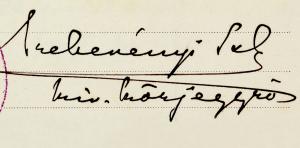 Szebenényi Pál
kir. közjegyző